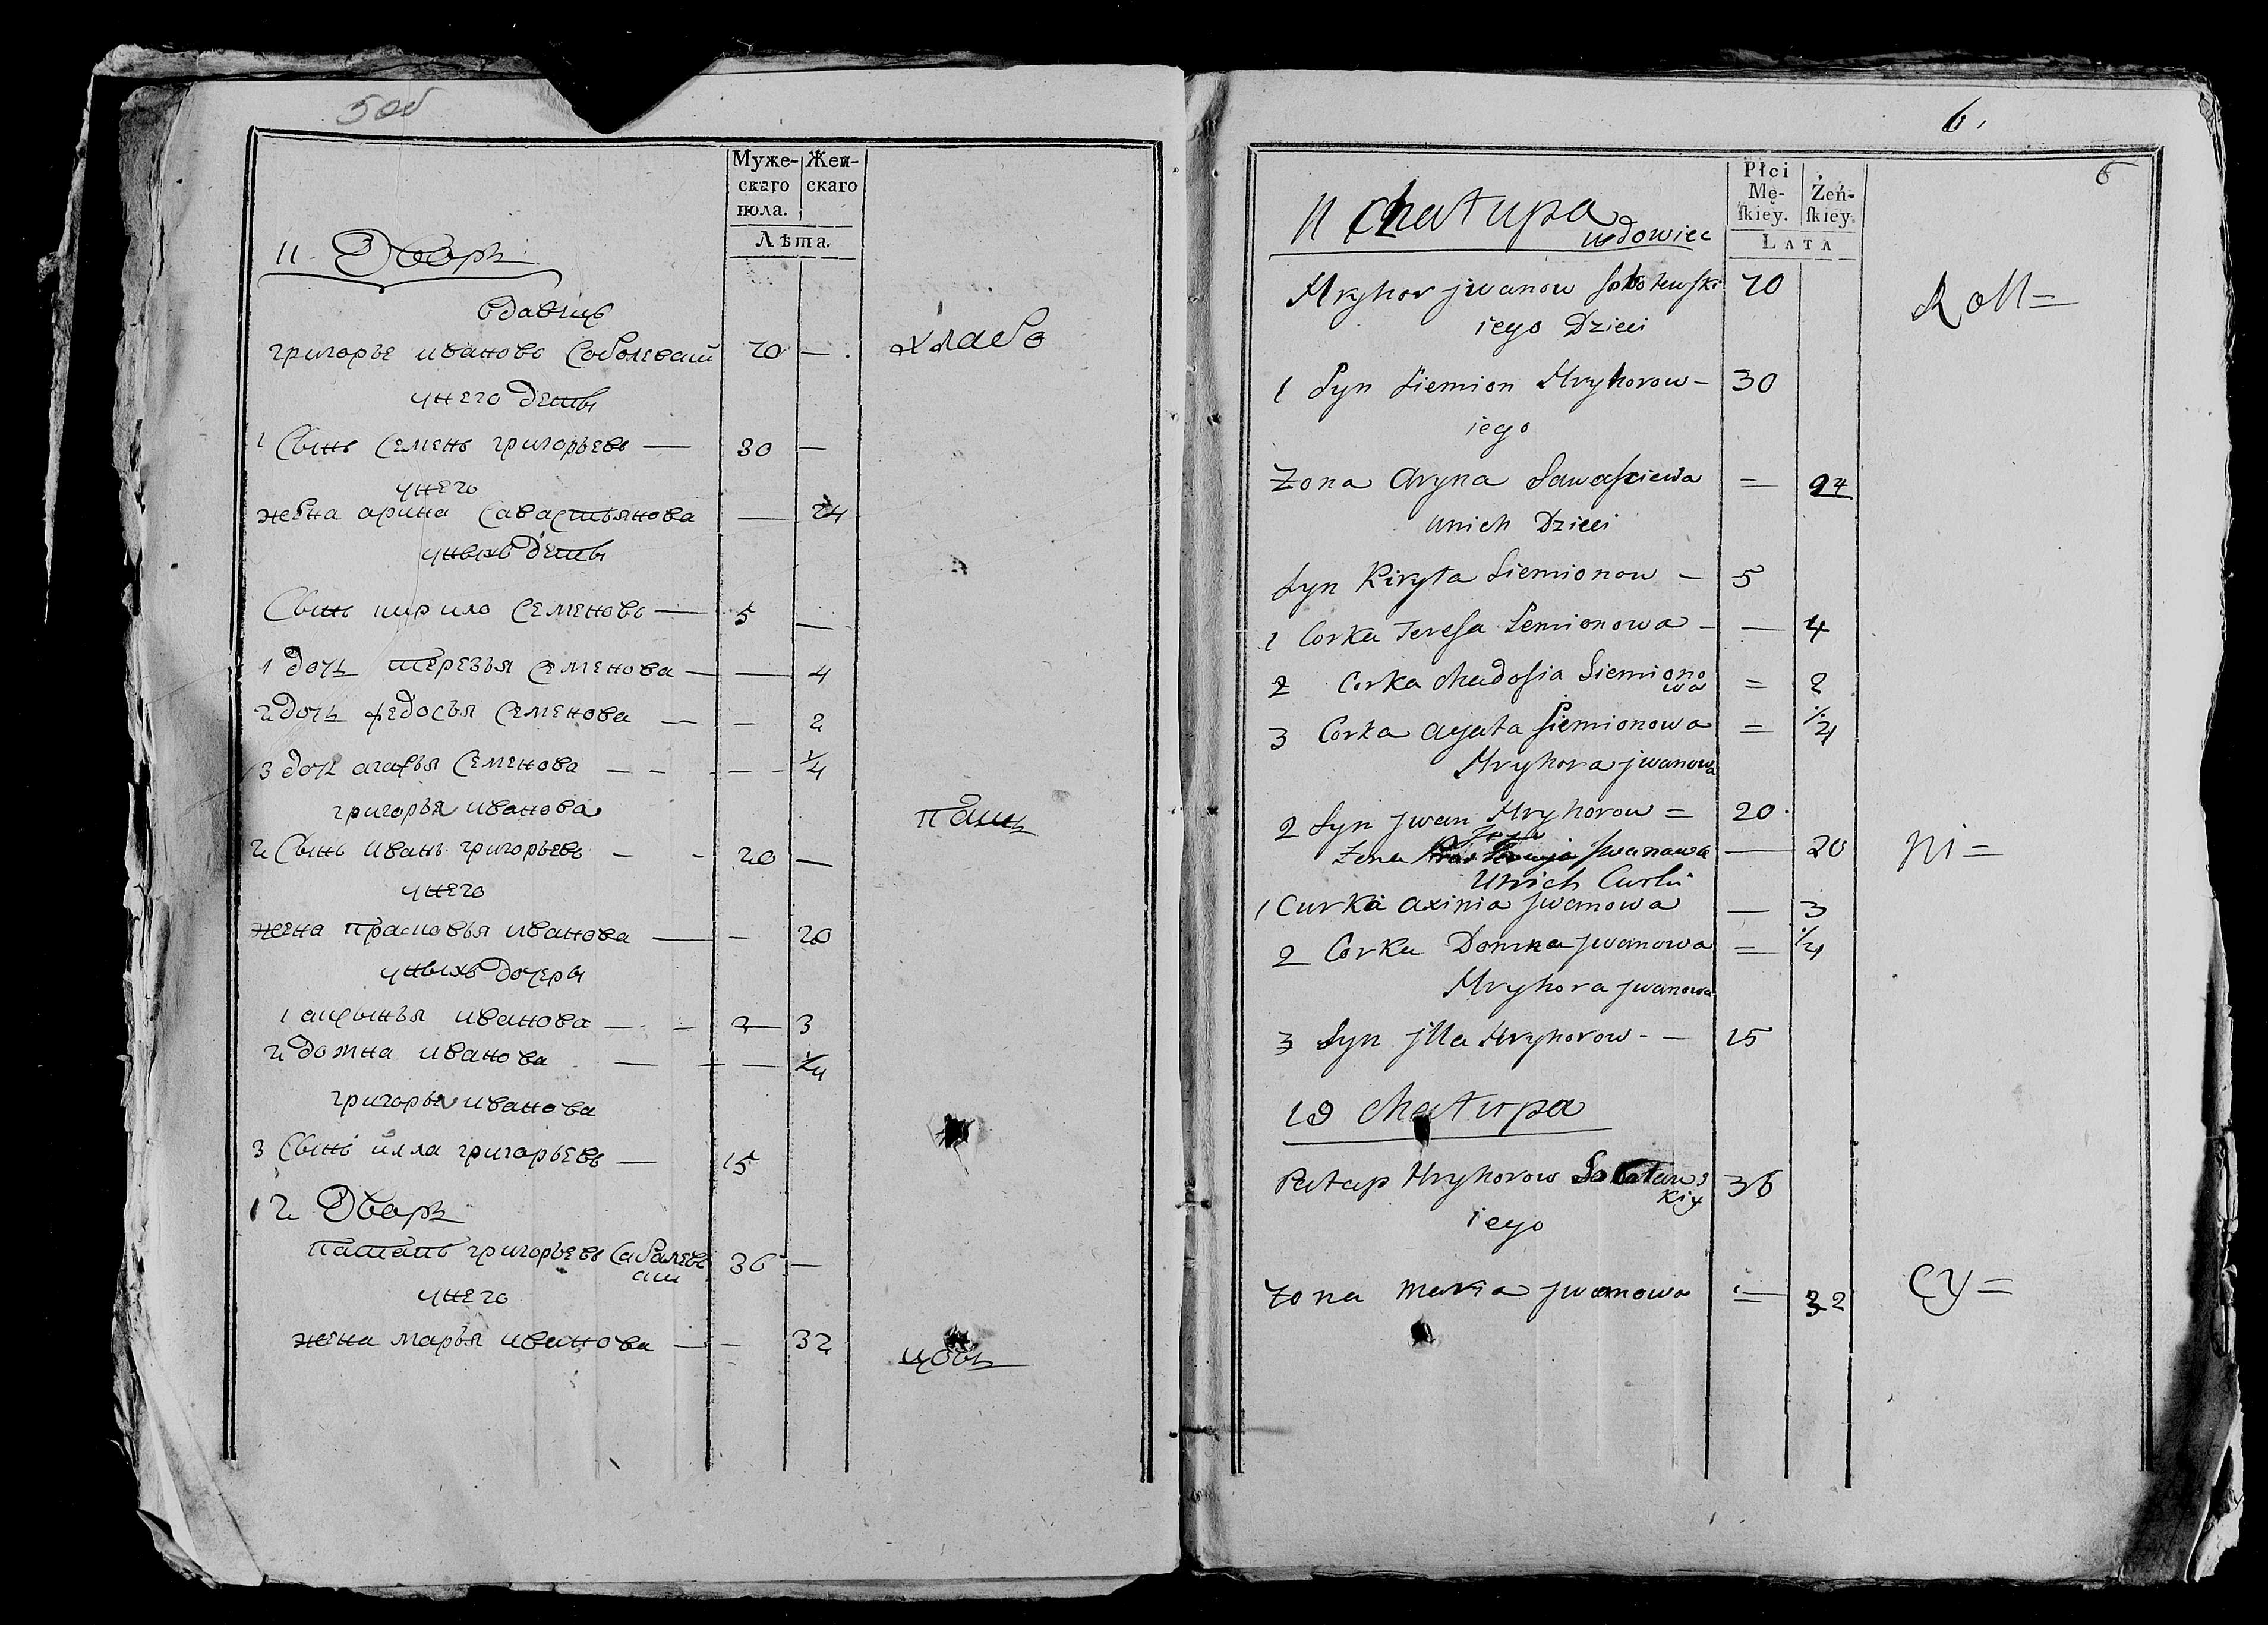 5 об
Муже-
скаго
пола.
Жен-
скаго
Лѣта.
11 Дворъ
вдавецъ
григорье ивановъ Соболевски 70 — хлебо
унего дети
1 Сынъ Семенъ григорьевъ — 30 —
унего
жена арина Савастьянова — 24
уныхъ дети
Сынъ кирило Семеновъ — 5 —
1 дочь терезья Семенова — — 4
2 дочь федосья Семенова — — 2
3 дочь агафья Семенова — — 1/4
григорья иванова
2 Сынъ иванъ григорьевъ — 20 —
пашъ
унего
жена прасковья иванова — — 20
уныхъ дочеры
1 аксынья иванова — — 3
2 домна иванова — — 1/4
григорья иванова
3 Сынъ илла григорьевъ — 15
12 Дворъ
патапъ григорьевъ Сабалевски 36 —
унего
жена марья иванова — — 32
цовъ
6
6
Płci
Mę-
ſkiey.
Żeń-
ſkiey.
LATA
11 Chatupa
wdowiec
Hryhor jwanow Sobolewski 70
Roll=
iego Dzieci
1 Syn Siemion Hryhorow — 30
iego
Zona Aryna Sawaſciewa = 24
unich Dzieci
Syn Kiryła Siemionow — 5
1 Corka Tereſa Semionowa — — 4
2 Corka Chadosia Siemionowa = 2
3 Corka agata Siemionowa = 1/4
Hryhora jwanowa
2 Syn jwan Hryhorow = 20
Zona jwanowa — 20
ni=
Unich Curki
1 Curka axinia jwanowa — 3
2 Corka Domna jwanowa = 1/4
Hryhora jwanowa
3 Syn jlla Hryhorow - — 15
12 Chatupa
Patap Hryhorow Sobolewskiy 36
iego
Zona Maria jwanowa = 32
cy=